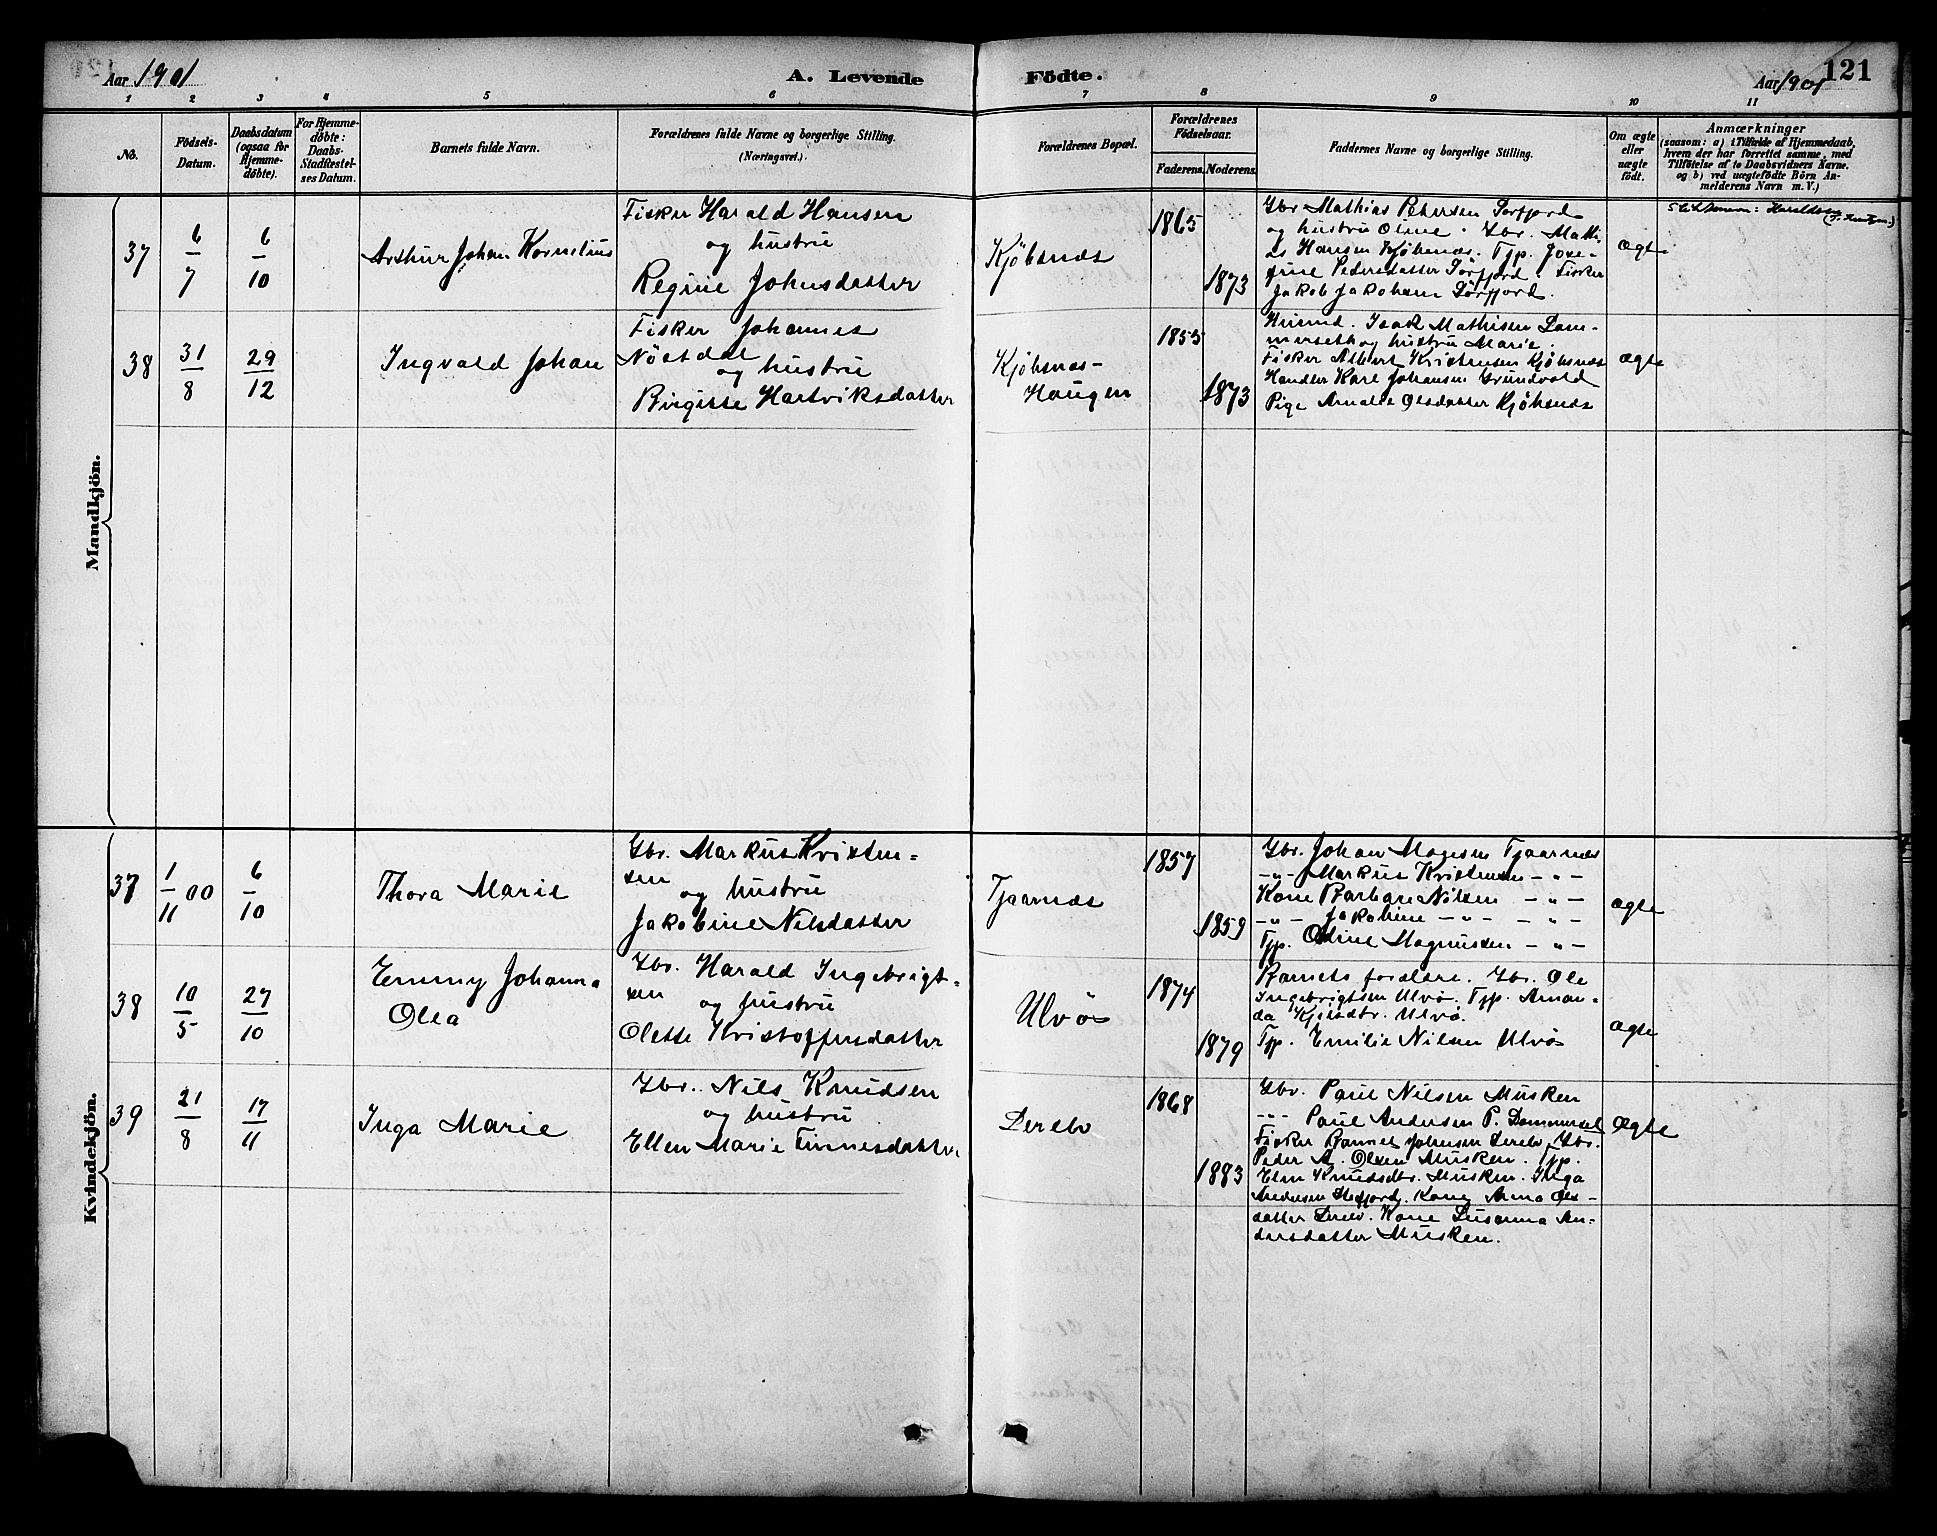 Aar 1901
A. Levende Födte.
Aar 1901
121
1 2 3 4 5 6 7 8 9 10 11
No.
Födsels-
Datum.
Daabsdatum
(ogsaa for
Hjemme-
døbte).
For Hjemme-
døbte:
Daabs-
Stadfæstel-
ses Datum.
Barnets fulde Navn.
Forældrenes fulde Navne og borgerlige Stilling.
(Næringsvei.)
Forældrenes Bopæl.
Forældrenes
Födselsaar.
Faderens. Moderens.
Faddernes Navne og borgerlige Stilling.
Om ægte
eller
uægte
födt.
Anmærkninger
(saasom: a) i Tilfælde af Hjemmedaab,
hvem der har forrettet samme, med
Tilföielse af to Daabsvidners Navne.
og b) ved uægtefödte Börn An-
melderens Navn m. V.)
Mandkjön.
37
6/7
6/10
Arthur Johan Kornelius
Fisker Harald Hansen
og hustru
Regine Johnsdatter
Kjöbsnæs
1865
1873
Gbr. Mathias Petersen Sørfjord
og hustru Oline. Gbr. Mathi-
as Hansen Kjöbsnæs. Tjp. Jose-
fine Pedersdatter Sörfjord. Fisker
Jakob Jakobsen Sörfjord.
ægte
38
31/8
29/12
Ingvald Johan
Fisker Johannes
Nöstdal
og hustru
Birgitte Hartviksdatter
Kjöbsnæs-
Haugen
1855
1873
Husmd. Isak Mathisen Dom-
merset og hustru Marie.
Fisker Albert Kristensen Kjöbsnæs
Handler Karl Johansen Grundvold
Pige Amalie Olsdatter Kjöbsnæs
ægte
Kvindekjön.
37
1/11 00
6/10
Thora Marie
Gbr. Markus Kristen-
sen
og hustru
Jakobine Nilsdatter
Tjaarnæs
1857
1859
Gbr. Johan Mogesen Tjaarnæs
-"- Markus Kristensen -"-
Kone Barbara Nilsen -"-
-"- Jakobine -"- -"-
Tjp. Odine Magnussen -"-
ægte
38
10/5
27/10
Emmy Johanna
Olea
Gbr. Harald Ingebrigt-
sen
og hustru
Olette Kristoffersdatter
Ulvö
1874
1879
Barnets forældre. Gbr. Ole
Ingebrigtsen Ulvö. Tjp. Aman-
da Kjelsdtr. Ulvö.
Tjp. Emilie Nilsen Ulvö
ægte
39
21/8
17/11
Inga Marie
Gbr. Nils Knudsen
og hustru
Ellen Marie Finnesdatter
Derebo
1868
1883
Gbr. Paul Nilsen Musken
-"- Paul Andersen P. Dommerset
Fisker Johnsen Derebo. Gbr.
Peder A. Olsen Musken. Tjp.
Elen Knudsdtr. Musken. Inga
Andersen Hefjord. Kone Anna Ols-
datter Derebo. Kone Susanna An-
dersdatter Musken.
ægte